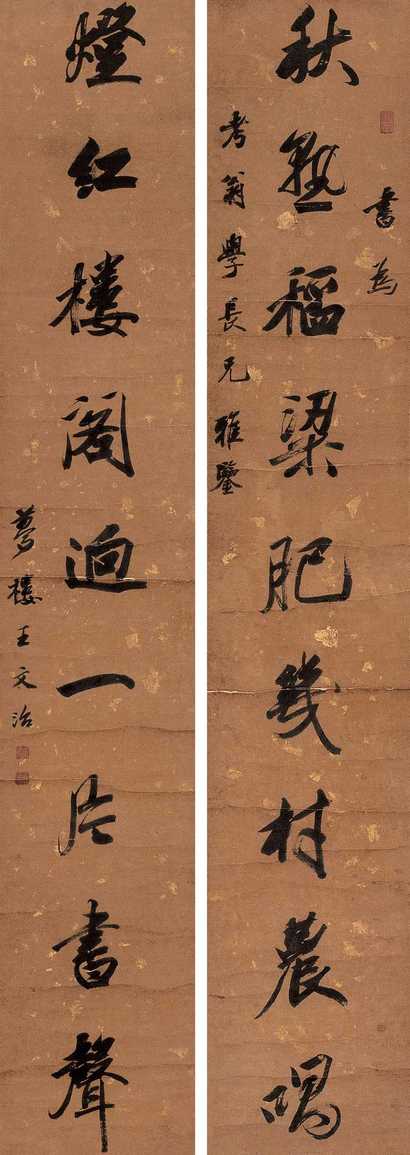 書為
秋熟稻粱肥幾村農唱
考翁學長兄雅鑒
燈紅樓閣迥一片書聲
夢樓王文治